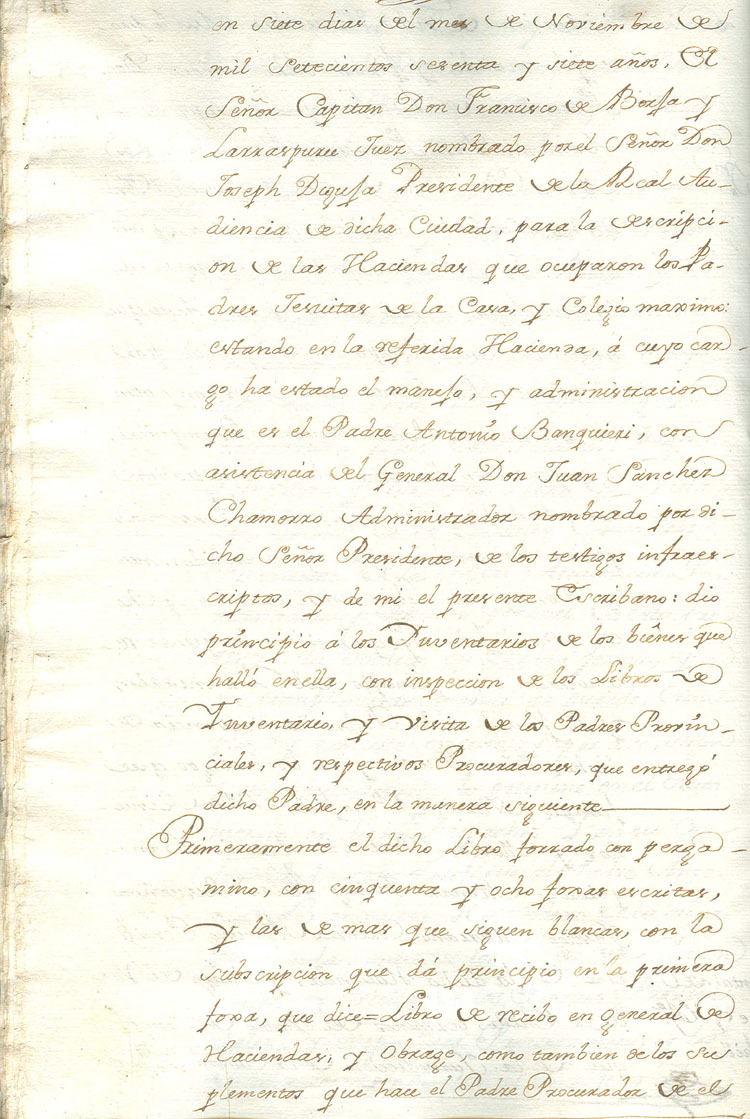 en siete dias del mes de Noviembre de
mil Setecientos sesenta y siete años, El
Señor Capitan Don Francisco de Borja y
Larraspuru Juez nombrado por el Señor Don
Joseph Diguja Presidente de la Real Au-
diencia de dicha Ciudad, para la descripci-
on de las Haciendas que ocuparon los Pa-
dres Jesuitas de la Casa, y Colegio maximo:
estando en la referida Hacienda, á cuyo car-
go ha estado el manejo, y administracion
que es el Padre Antonio Banquieri, con
asistencia del General Don Juan Sanchez
Chamorro Administrador nombrado por di-
cho Señor Presidente, de los testigos infraes-
criptos, y de mi el presente Escribano: dio
principio á los Inventarios de los biênes que
halló en ella, con inspeccion de los Libros de
Inventario, y visita de los Padres Provin-
ciales, y respectivos Procuradores, que entregó
dicho Padre, en la manera siguiente
Primeramente el dicho Libro forrado con perga-
mino, con cinquenta y ocho foxas escritas,
y las de mas que siguen blancas, con la
subscripcion que dá principio en la primera
foxa, que dice = Libro de recibo en general de
Haciendas, y Obrage, como tambien de los su
plementos que hace el Padre Procurador de el